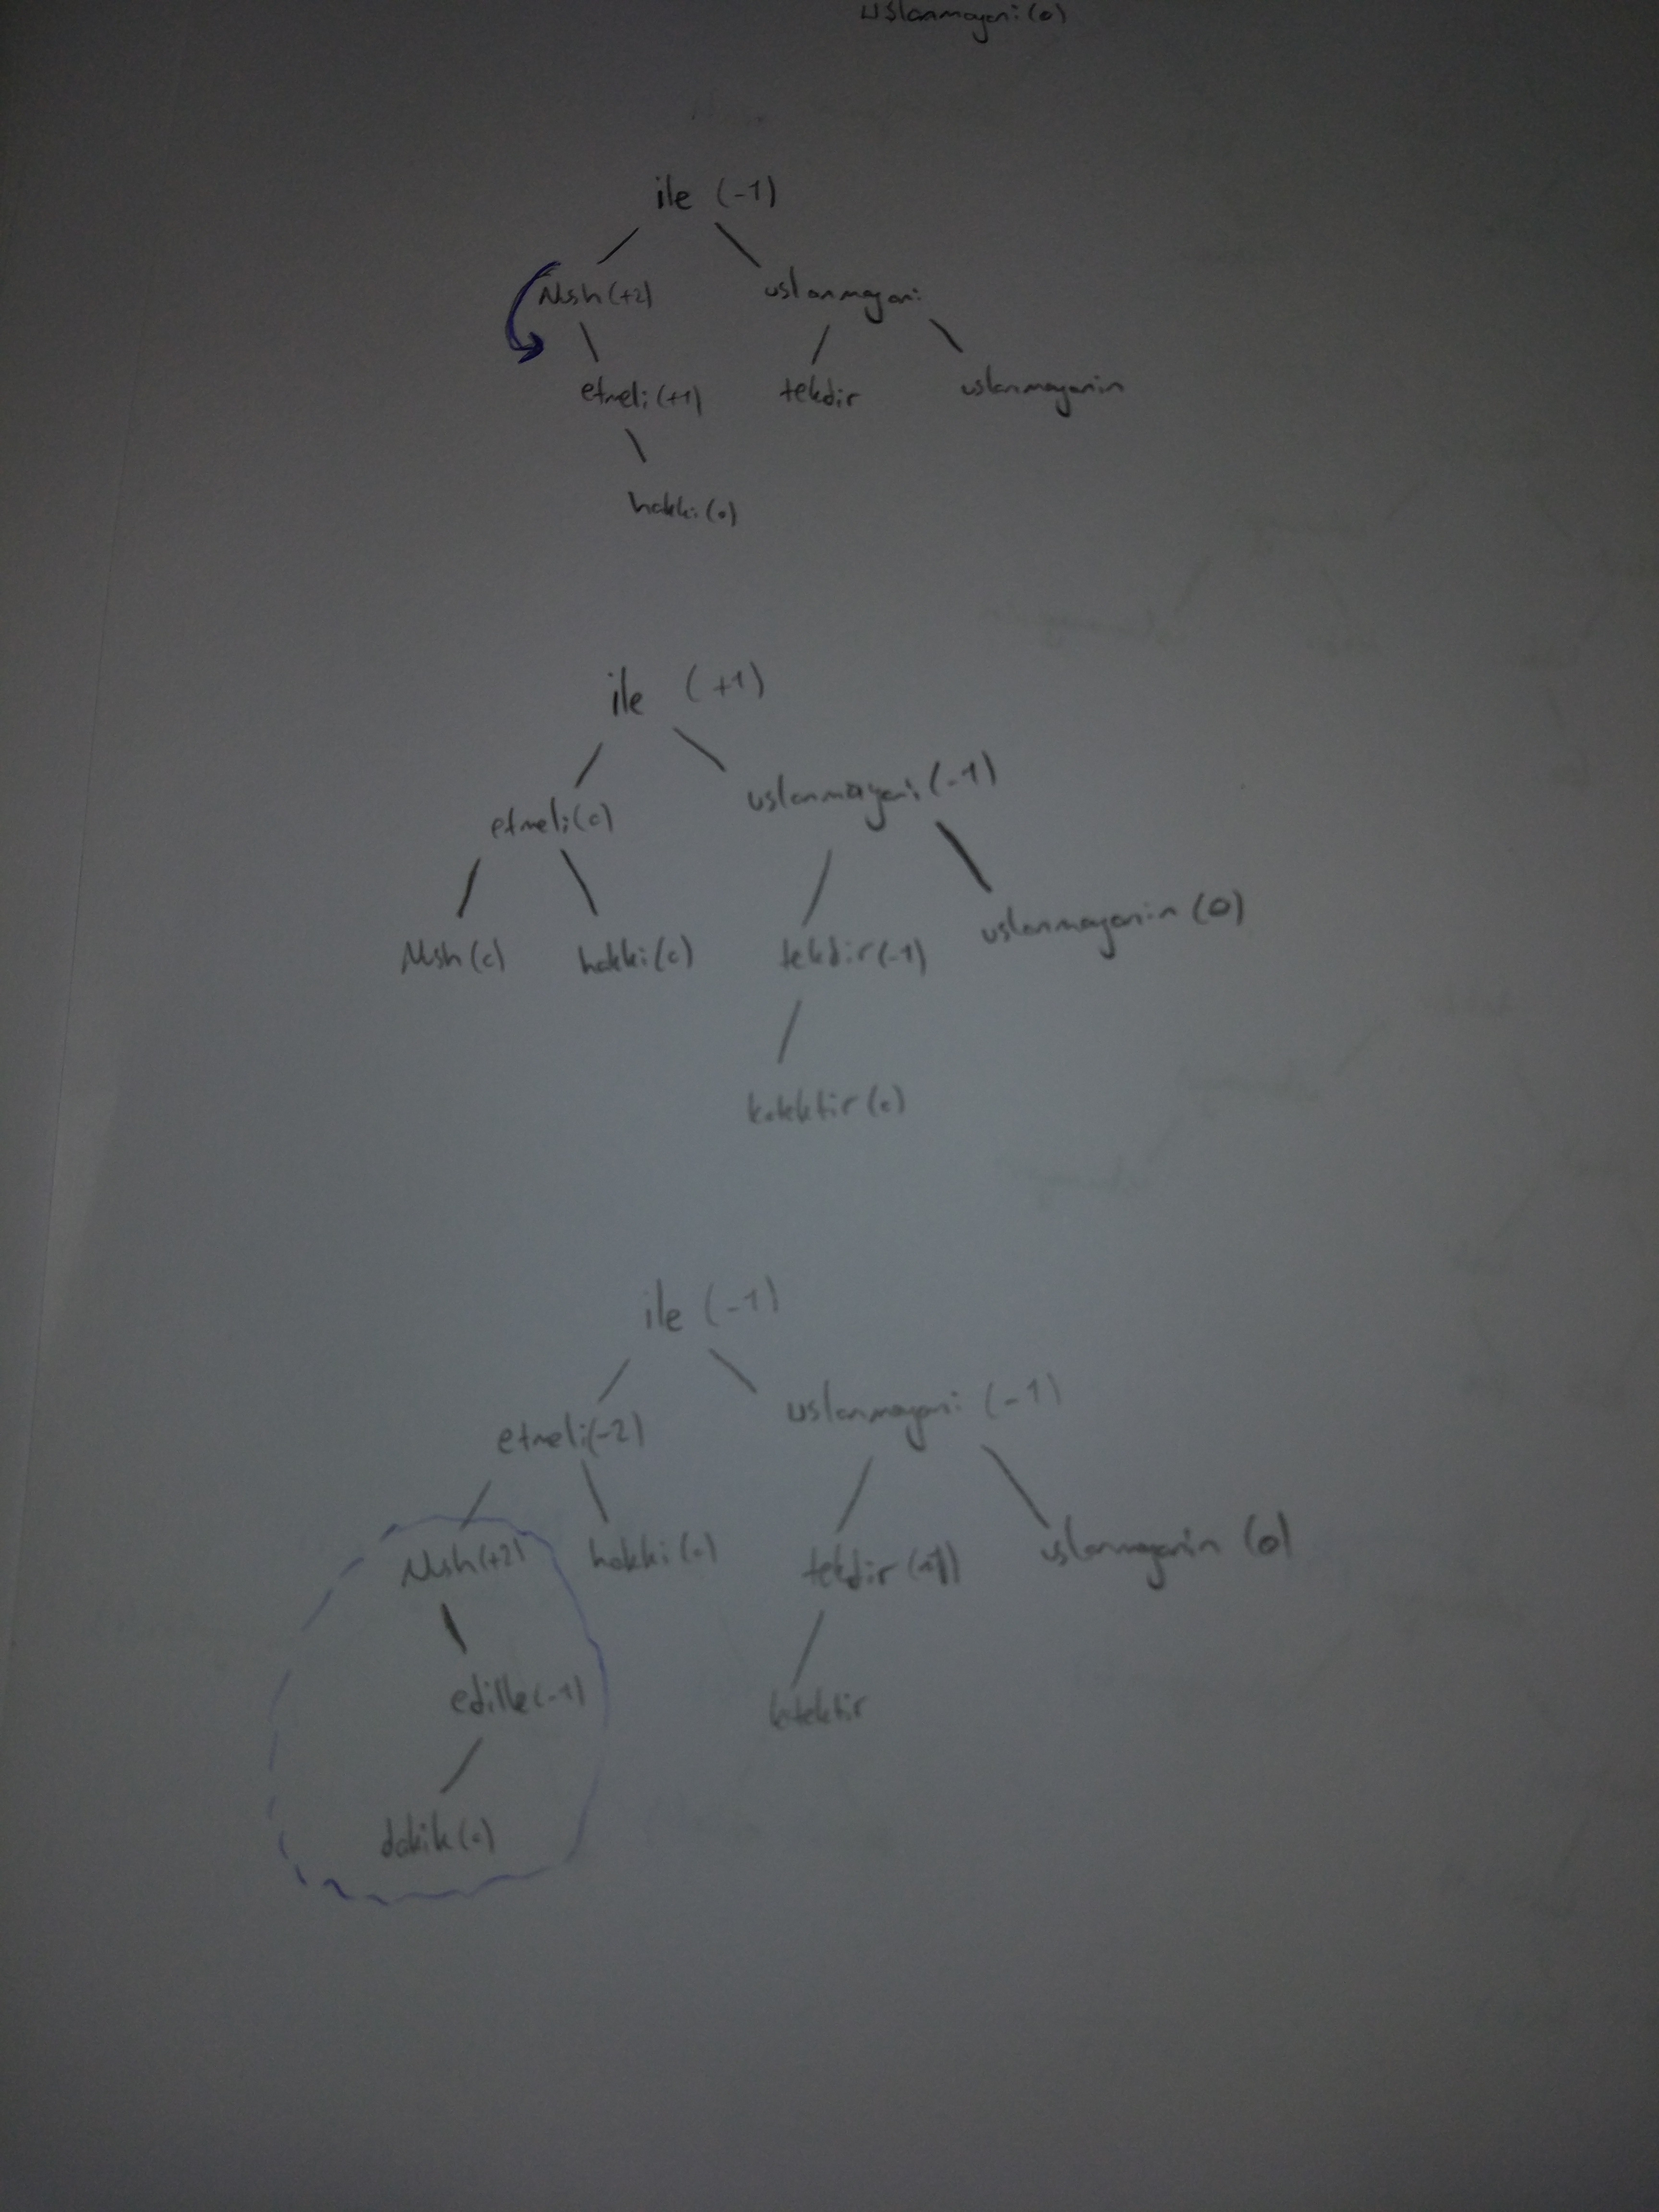 uslanmayani (0)
ile (-1)
Nush (+2) uslanmayani
etmeli (+1) tekdir uslanmayanin
hakki (0)
ile (+1)
etmeli (0) uslanmayani (-1)
Nush (0) hakki (0) tekdir (-1) uslanmayanin (0)
kötektir (0)
ile (-1)
etmeli (-2) uslanmayani (-1)
Nush (+2) hakki (0) tekdir uslanmayanin (0)
edille (-1) kötektir
dakik (0)